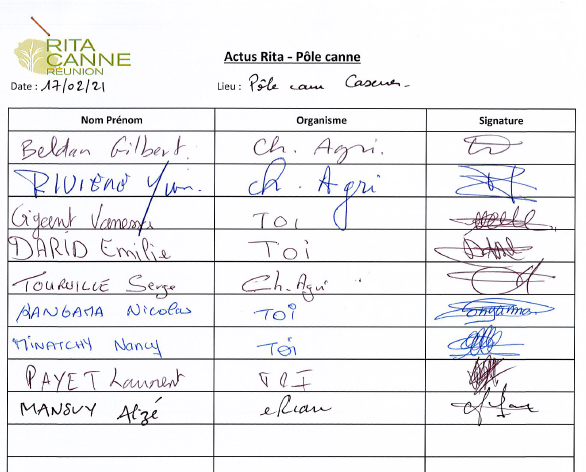 RITA
CANNE
RÉUNION
Actus Rita - Pôle canne
Date : 17/02/21 Lieu : Pôle
Nom Prénom Organisme Signature
Beldan Gilbert. Ch. Agri.
RIVIERE Ch. Agri
Gigant Vanessa TOI
DARID Emilie TOI
TOURVILLE Serge Ch. Agri
RANGAMA Nicolas TOI
MINATCHY Nancy TOI
PAYET Laurent
MANSUY Alizé